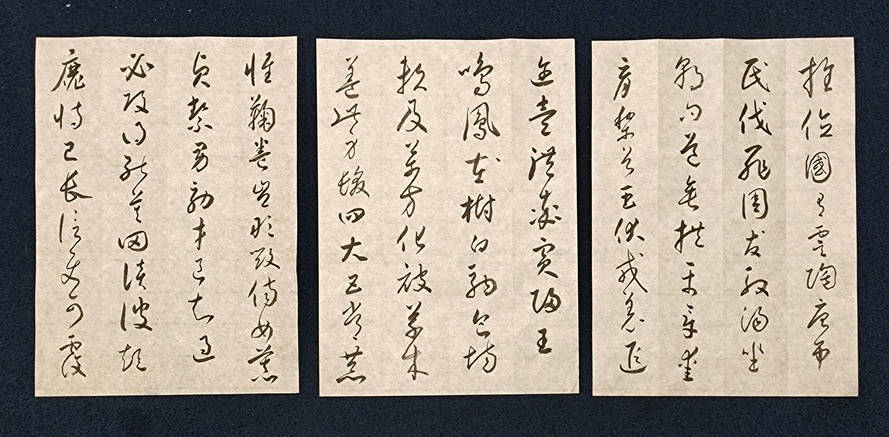 推位國有虞陶唐弔
民伐罪周發殷湯坐
朝問道垂拱平章愛
育黎首臣伏戎羌遐
邇壹體率賓歸王
鳴鳳在樹白駒食場
賴及萬方化被草木
蓋此身髮四大五常恭
惟鞠養豈敢毀傷女慕
貞絜男效才良知過
必改得能莫罔談彼短
靡恃己長信使可覆